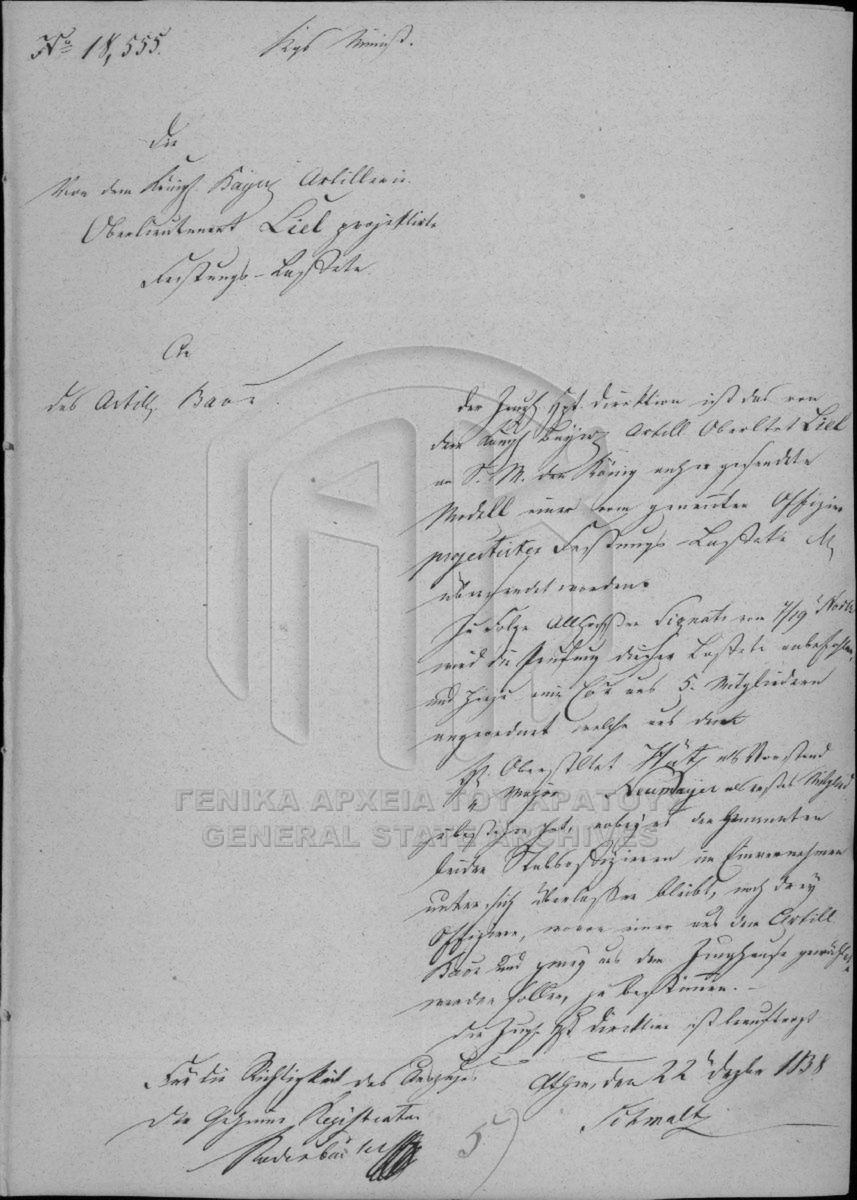 No 18,555.
Kgs Minist.
Die
Von dem Königl. Bayer. Artillerie
Oberlieutenant Liel projektirte
Festungs-Laffete
An
das Artill. Baon
Der Zeugh. Hpt. Direktion ist das von
dem Königl. Bayer. Artill Oberltnt Liel
an S. M. den König anher gesendete
Modell einer vom genannten Offizier
projectirten Festungs-Laffete
übersendet worden.
Zu Folge Allerhöchsten Signats vom 7/19 Novbr
wird die Prüfung dieser Laffete anbefohlen,
und hiezu eine aus 5. Mitgliedern
angeordnet welche aus dem
Oberstltnt als Vorstand
Major Neumayer als erstes Mitglied
zu bestehen hat, wobey es den Genannten
beiden Stabsoffizieren im Einvernehmen
unter sich überlassen bleibt, noch drey
Offiziere, wovon einer aus dem Artill
Baon und zwey aus dem Zeughause gewählt
werden sollen, zu bestimmen. –
Die Zeugh. Hpt Direktion ist beauftragt
Athen, den 22 Dezbr 1838
Schmaltz
Für die Richtigkeit des Auszuges
Der Geheime Registrator
5
ΓΕΝΙΚΑ ΑΡΧΕΙΑ ΤΟΥ ΚΡΑΤΟΥΣ
GENERAL STATE ARCHIVES